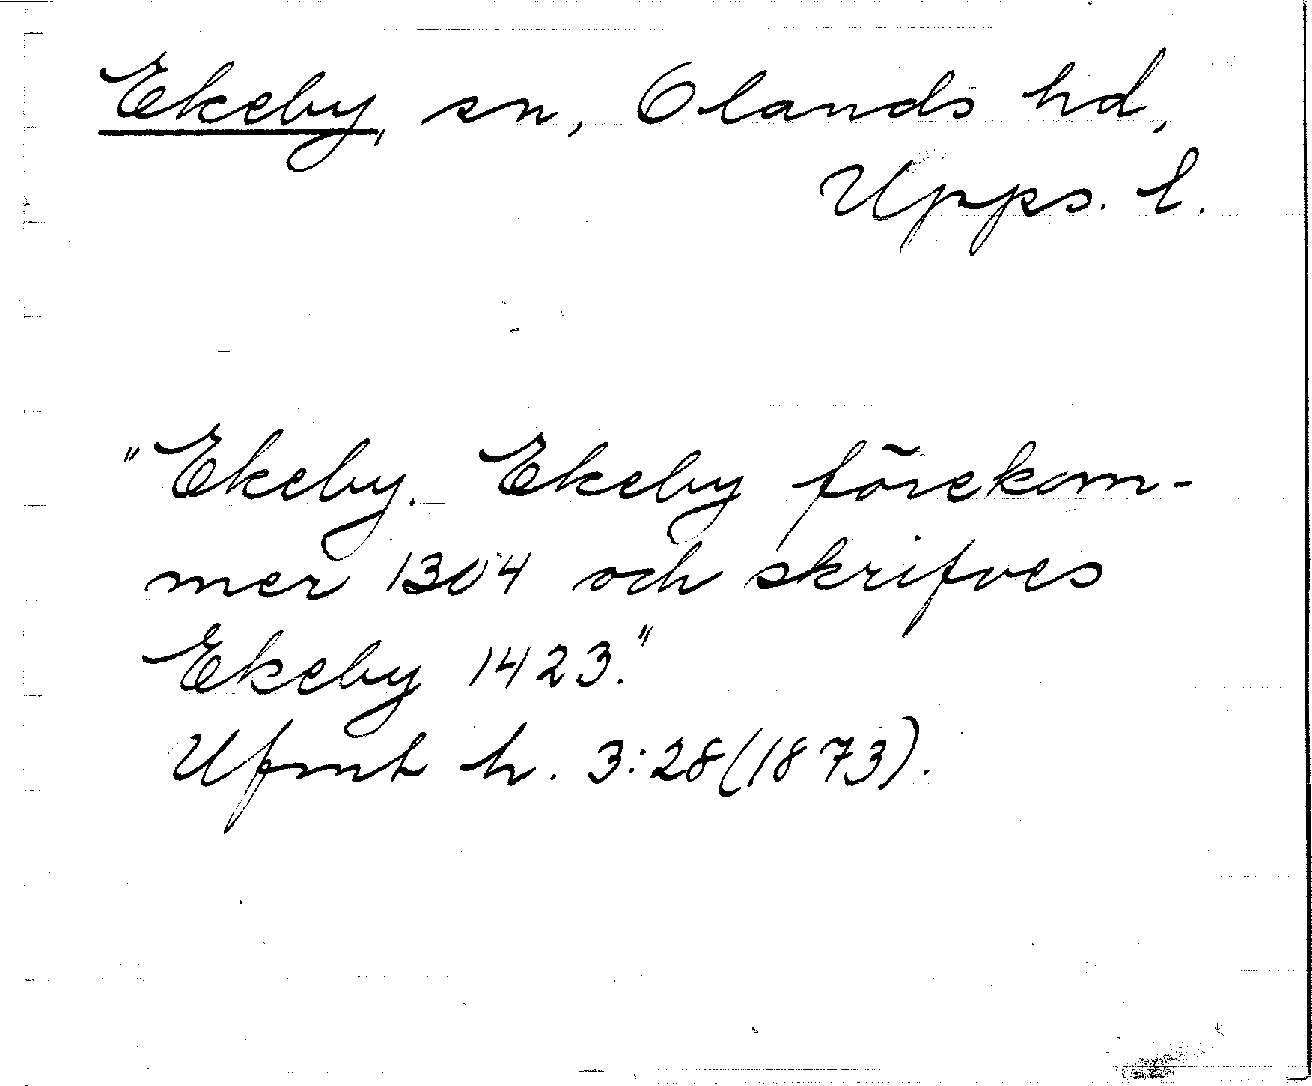 Ekeby, sn, Olands hd,
Upps. l.
"Ekeby. Ekeby förekom-
mer 1304 och skrifves
Ekeby 1423."
Ufmt h. 3:28 (1873).